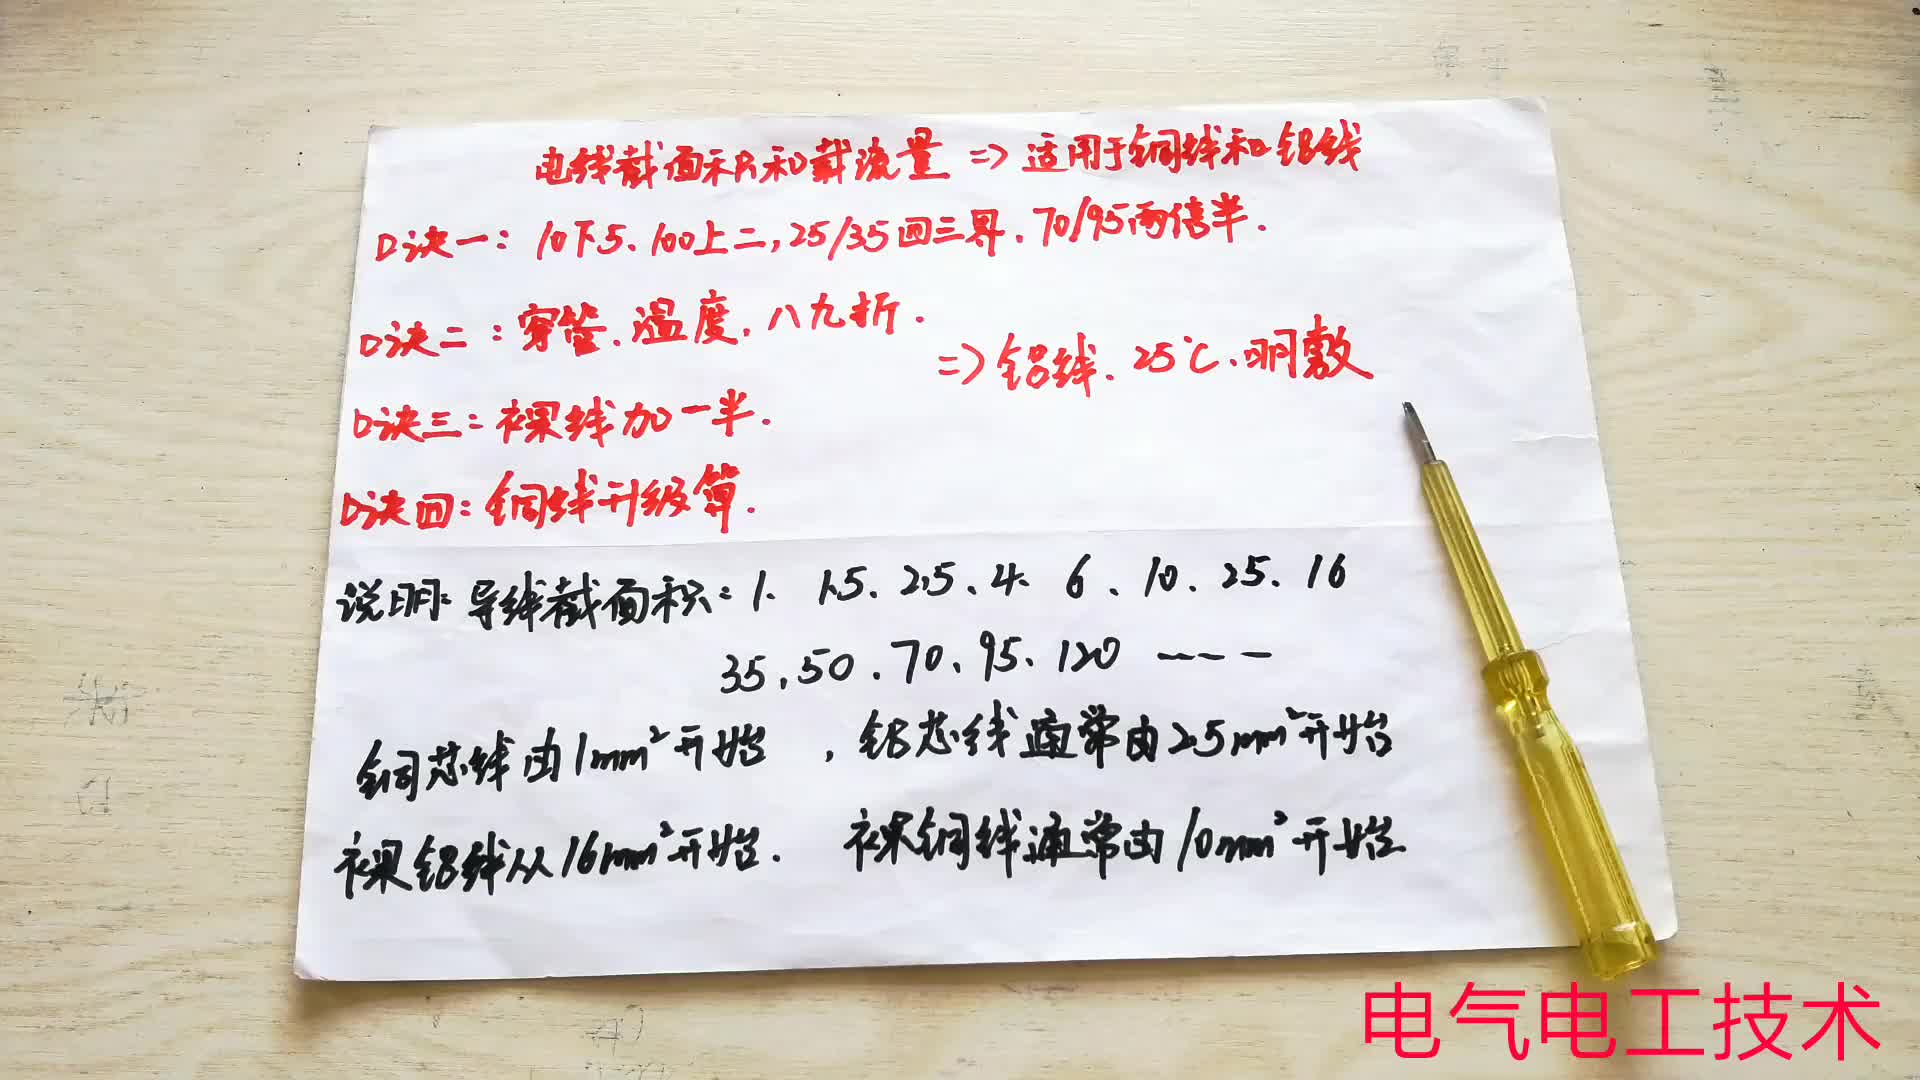 电线截面积和载流量 => 适用于铜线和铝线
口诀一：10下5、100上二，25/35四三界．70/95两倍半．
口诀二：穿管、温度，八九折．
=> 铝线．25℃．明敷
口诀三：裸线加一半．
口诀四：铜线升级算．
说明：导线截面积：1、1.5、2.5、4、6、10、25、16
35、50、70、95、120 ----
铜芯线由1mm²开始，铝芯线通常由2.5mm²开始
裸铝线从16mm²开始．裸铜线通常由10mm²开始
电气电工技术